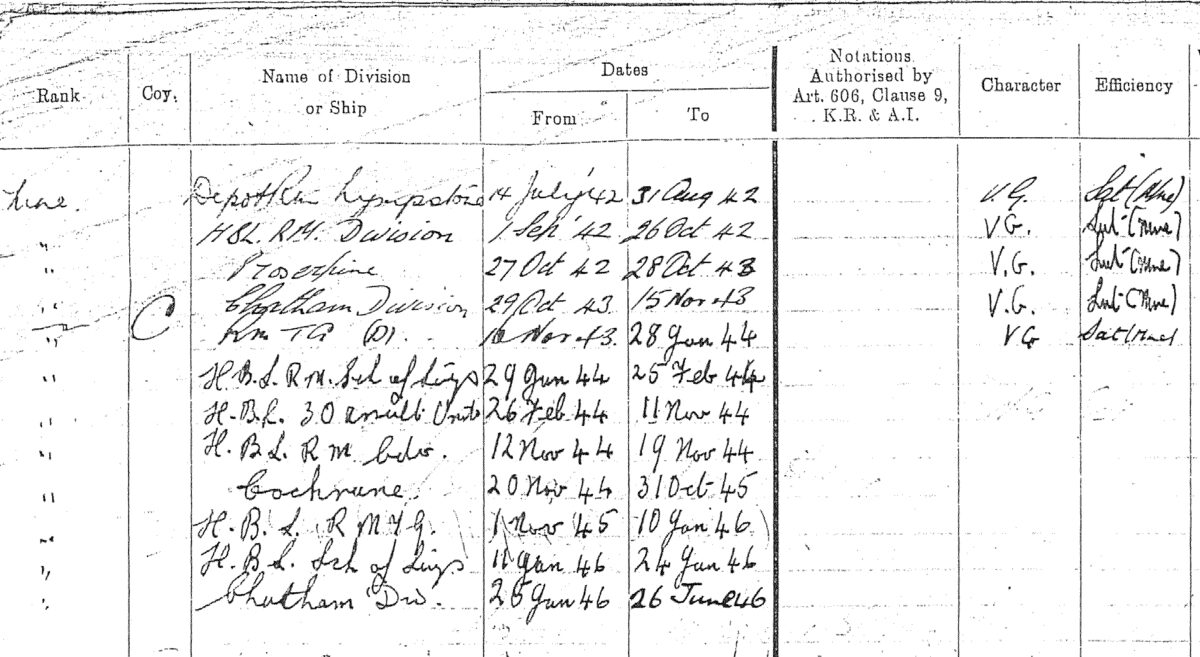 Rank. Coy. Name of Division or Ship Dates From To Notations Authorised by Art. 606, Clause 9, K.R. & A.I. Character Efficiency
Depot R.M. Lympstone 14 July '42 31 Aug 42 V.G. Sat (Mne)
" H.B.L. R.M. Division 1 Sep 42 26 Oct 42 V.G. Sat (Mne)
" Proserpine 27 Oct 42 28 Oct 43 V.G. Sat (Mne)
" C Chatham Division 29 Oct 43 15 Nov 43 V.G. Sat (Mne)
" RM TG (D). 16 Nov 43. 28 Jan 44 VG Sat (Mne)
" H.B.L. R.M. Sch of Sigs 29 Jan 44 25 Feb 44
" H.B.L. 30 Unit 26 Feb 44 11 Nov 44
" H.B.L. R M 12 Nov 44 19 Nov 44
" Cochrane. 20 Nov 44 31 Oct 45
" H.B.L. R M T G. 1 Nov 45 10 Jan 46
" H.B.L. Sch of Sigs 11 Jan 46 24 Jan 46
" Chatham Div. 25 Jan 46 26 June 46